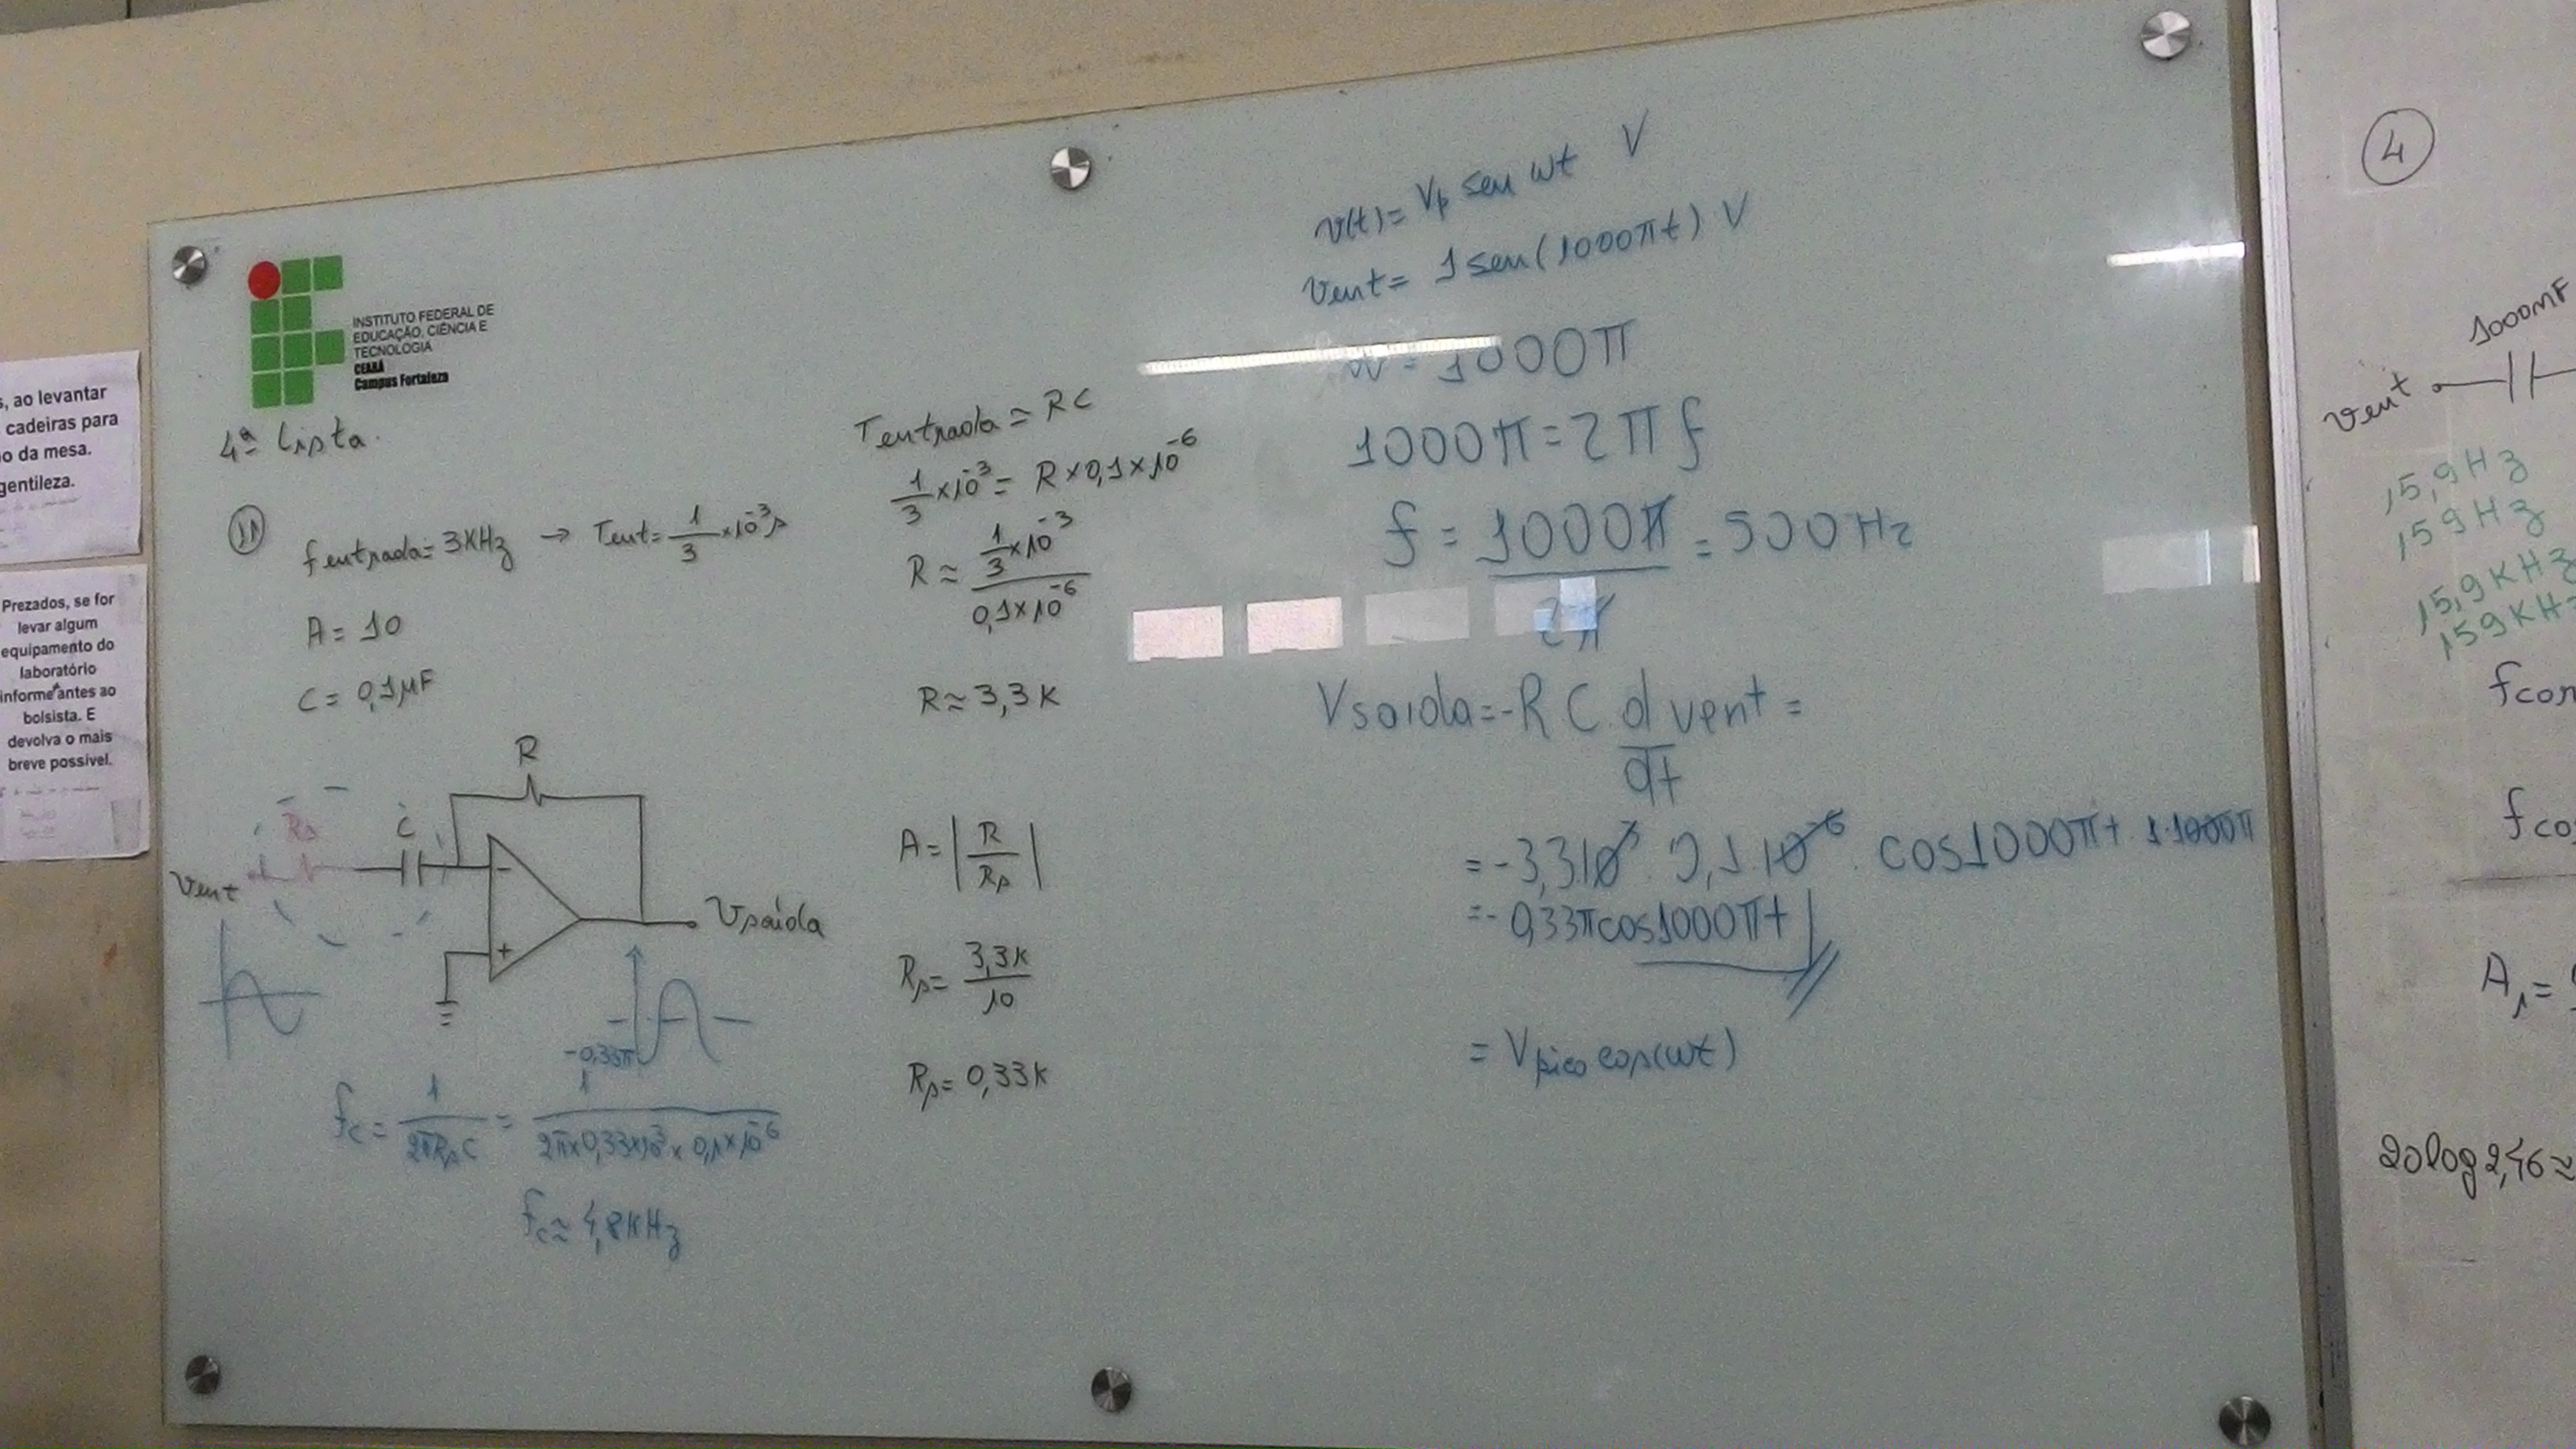 s, ao levantar
cadeiras para
o da mesa.
gentileza.
Prezados, se for
levar algum
equipamento do
laboratório
informe antes ao
bolsista. E
devolva o mais
breve possível.
INSTITUTO FEDERAL DE
EDUCAÇÃO, CIÊNCIA E
TECNOLOGIA
CEARÁ
Campus Fortaleza
4ª Lista.
11
fentrada = 3KHz → Tent = 1/3 × 10⁻³ s
A = 10
C = 0,1µF
R
Rs
C
Vent
-
+
Vsaída
-0,33π
fc = 1/(2πRsC) = 1/(2π×0,33×10³×0,1×10⁻⁶)
fc ≈ 4,8KHz
Tentrada ≈ RC
1/3 × 10⁻³ = R × 0,1 × 10⁻⁶
R ≈ (1/3 × 10⁻³)/(0,1 × 10⁻⁶)
R ≈ 3,3K
A = |R/Rs|
Rs = 3,3K/10
Rs = 0,33K
v(t) = Vp sen wt V
Vent = 1 sen(1000πt) V
w = 1000π
1000π = 2πf
f = 1000π/2π = 500Hz
Vsaida = -RC. d vent/dt =
= -3,3.10³. 0,1.10⁻⁶. cos1000πt. 1.1000π
= -0,33πcos1000πt
= Vpico cos(wt)
4
1000nF
Vent
15,9Hz
159Hz
15,9KHz
159KHz
fcor
fco
A₁ =
20log2,46 ≈